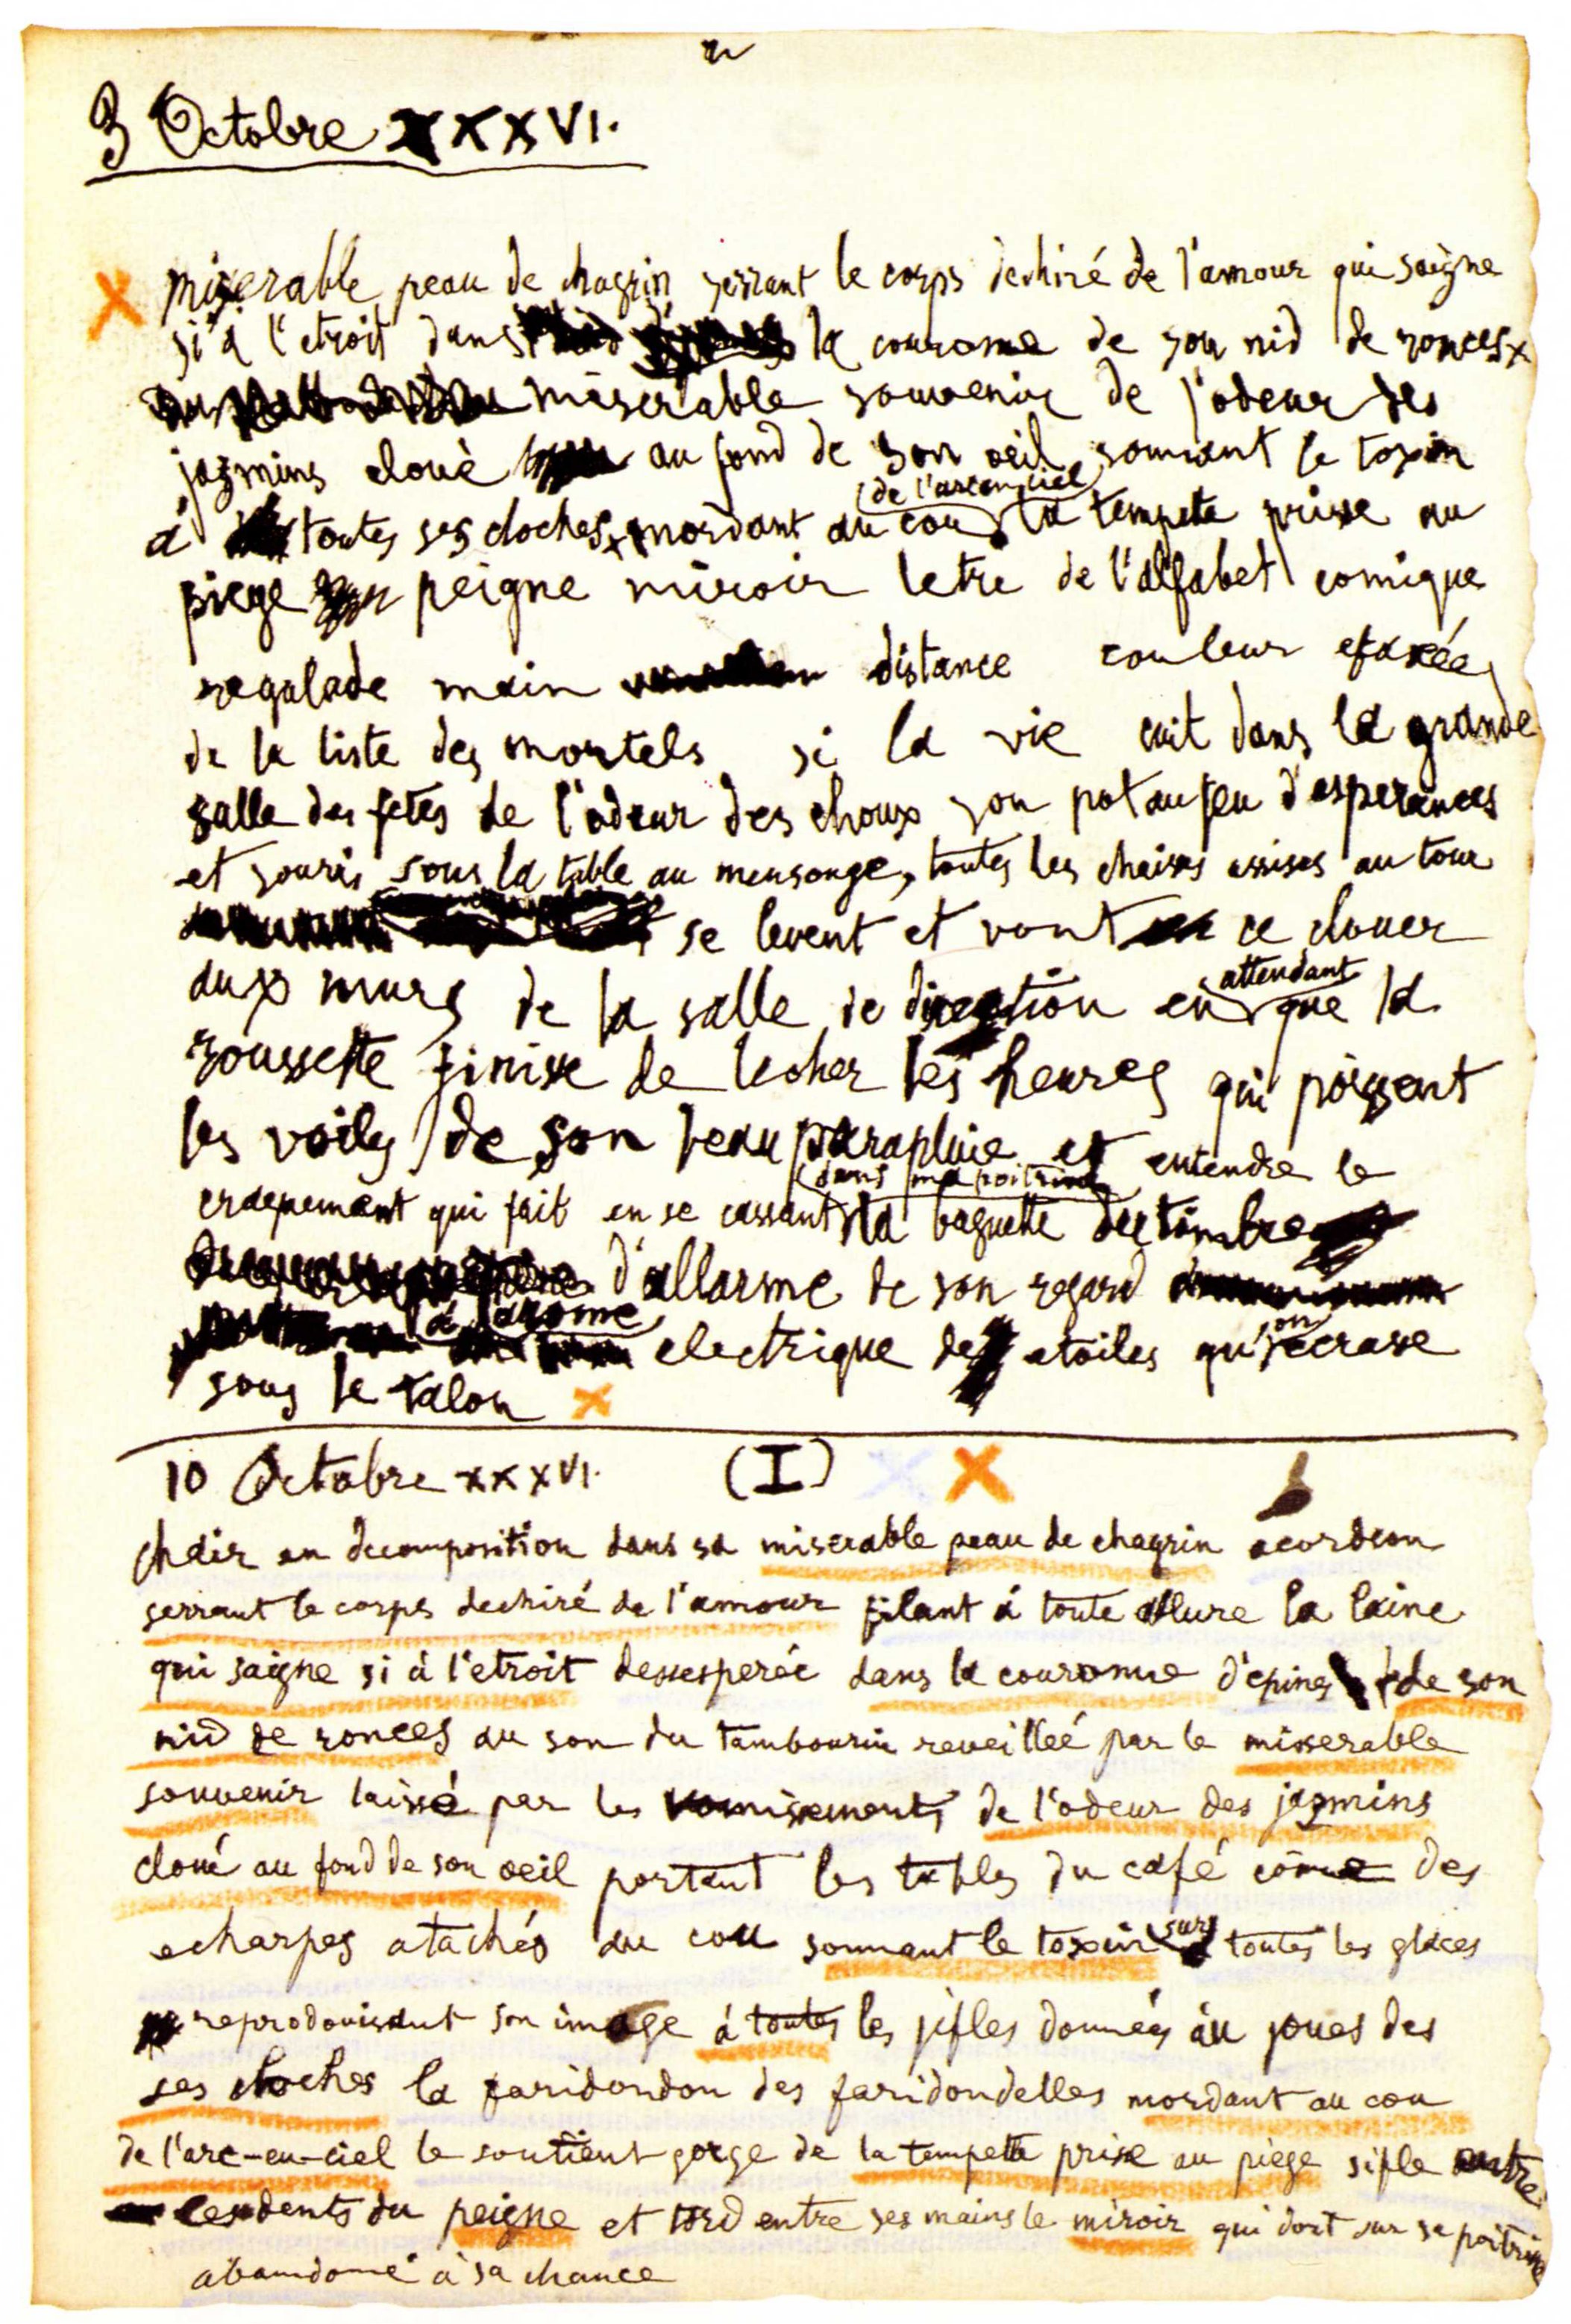 3 Octobre XXXVI.
miserable peau de chagrin serrant le corps dechiré de l'amour qui saigne
si à l'etroit dans la couronne de son nid de ronces x
miserable souvenir de l'odeur des
jazmins cloué au fond de son oeil sonnant le toxin
à toutes ses cloches x mordant au cou (de l'arc en ciel) la tempete prise au
piege peigne miroir letre de l'alfabet comique
regalade main distance couleur efacée
de la liste des mortels si la vie cuit dans la grande
salle des fetes de l'odeur des choux son pot au feu d'esperances
et souris sous la table au mensonge, toutes les chaises assises au tour
se levent et vont ce clouer
aux murs de la salle de direction en attendant que la
roussette finise de lecher les heures qui poissent
les voiles de son beau parapluie et entendre le
craquement qui fait en se cassant (dans ma poitrine) la baguette du timbre
d'allarme de son regard
à l'arome electrique des etoiles qu'on ecrase
sous le talon x
10 Octobre XXXVI. (I) X
chair en decomposition dans sa miserable peau de chagrin acordeon
serrant le corps dechiré de l'amour filant à toute allure la laine
qui saigne si à l'etroit dessesperée dans la couronne d'epines de son
nid de ronces au son du tambourin reveilleé par le misserable
souvenir laissé par les vomissements de l'odeur des jazmins
cloué au fond de son oeil portant les tables du café come des
echarpes atachés au cou sonnant le toxin sur toutes les glaces
reprodouisant son image à toutes les jifles données au joues des
ses cloches la faridondon des faridondelles mordant au cou
de l'arc-en-ciel le soutient gorge de la tempette prise au piege sifle entre
les dents du peigne et tord entre ses mains le miroir qui dort sur sa poitrine
abandoné à sa chance